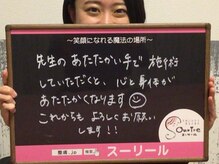 ～笑顔になれる魔法の場所～
先生の あたたかい手で 施術
していただくと、心と身体が
あたたかくなります☺
これからも よろしくお願い
します!!
Sourire
整体.jp
スーリール